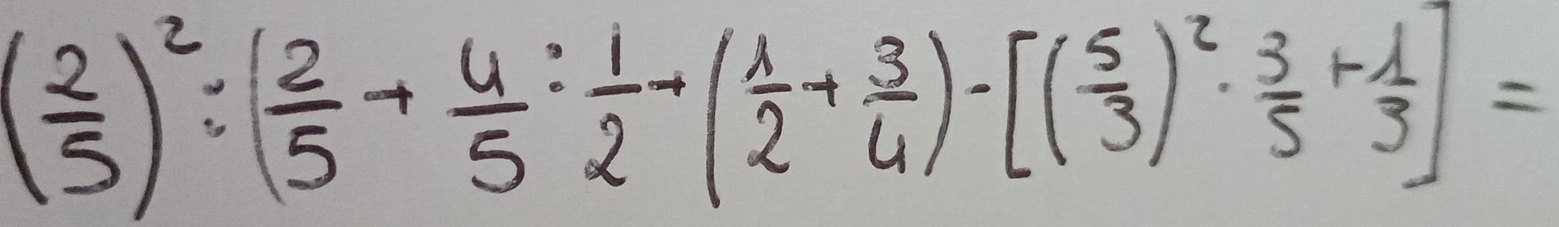 (2/5)² : (2/5 + 4/5 : 1/2 + (1/2 + 3/4) - [(5/3)² · 3/5 + 1/3] =